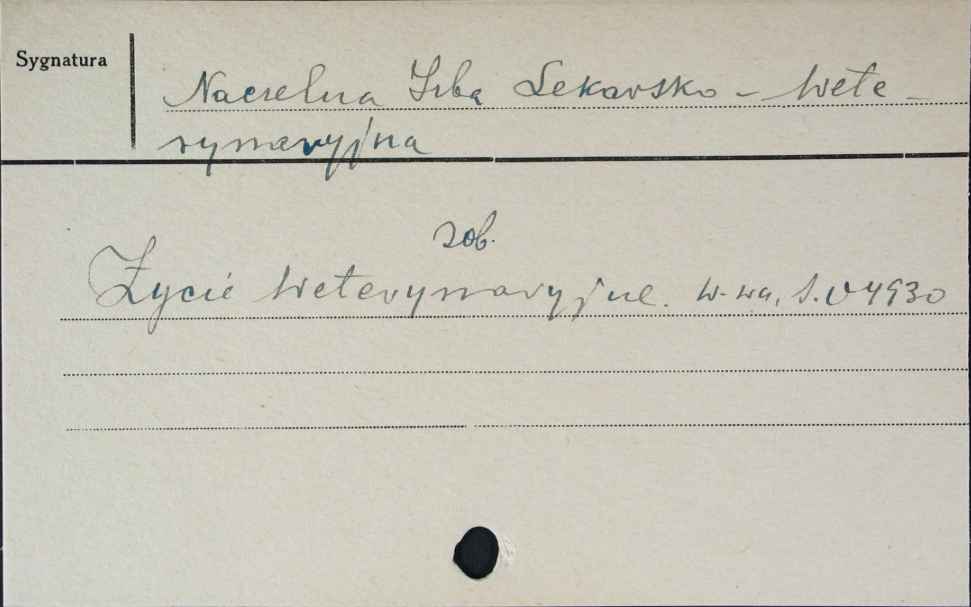 Sygnatura
Naczelna Izba Lekarsko - Wete -
rynaryjna
zob.
Życie Weterynaryjne. W-wa, S.04930